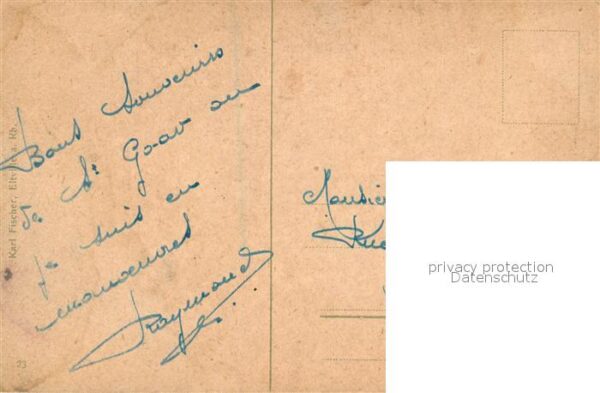 Bons Souvenirs
de St Goar ou
je suis en
manoeuvres
Raymond
Karl Fischer, Eltville a. Rh.
23
Monsie
privacy protection
Datenschutz